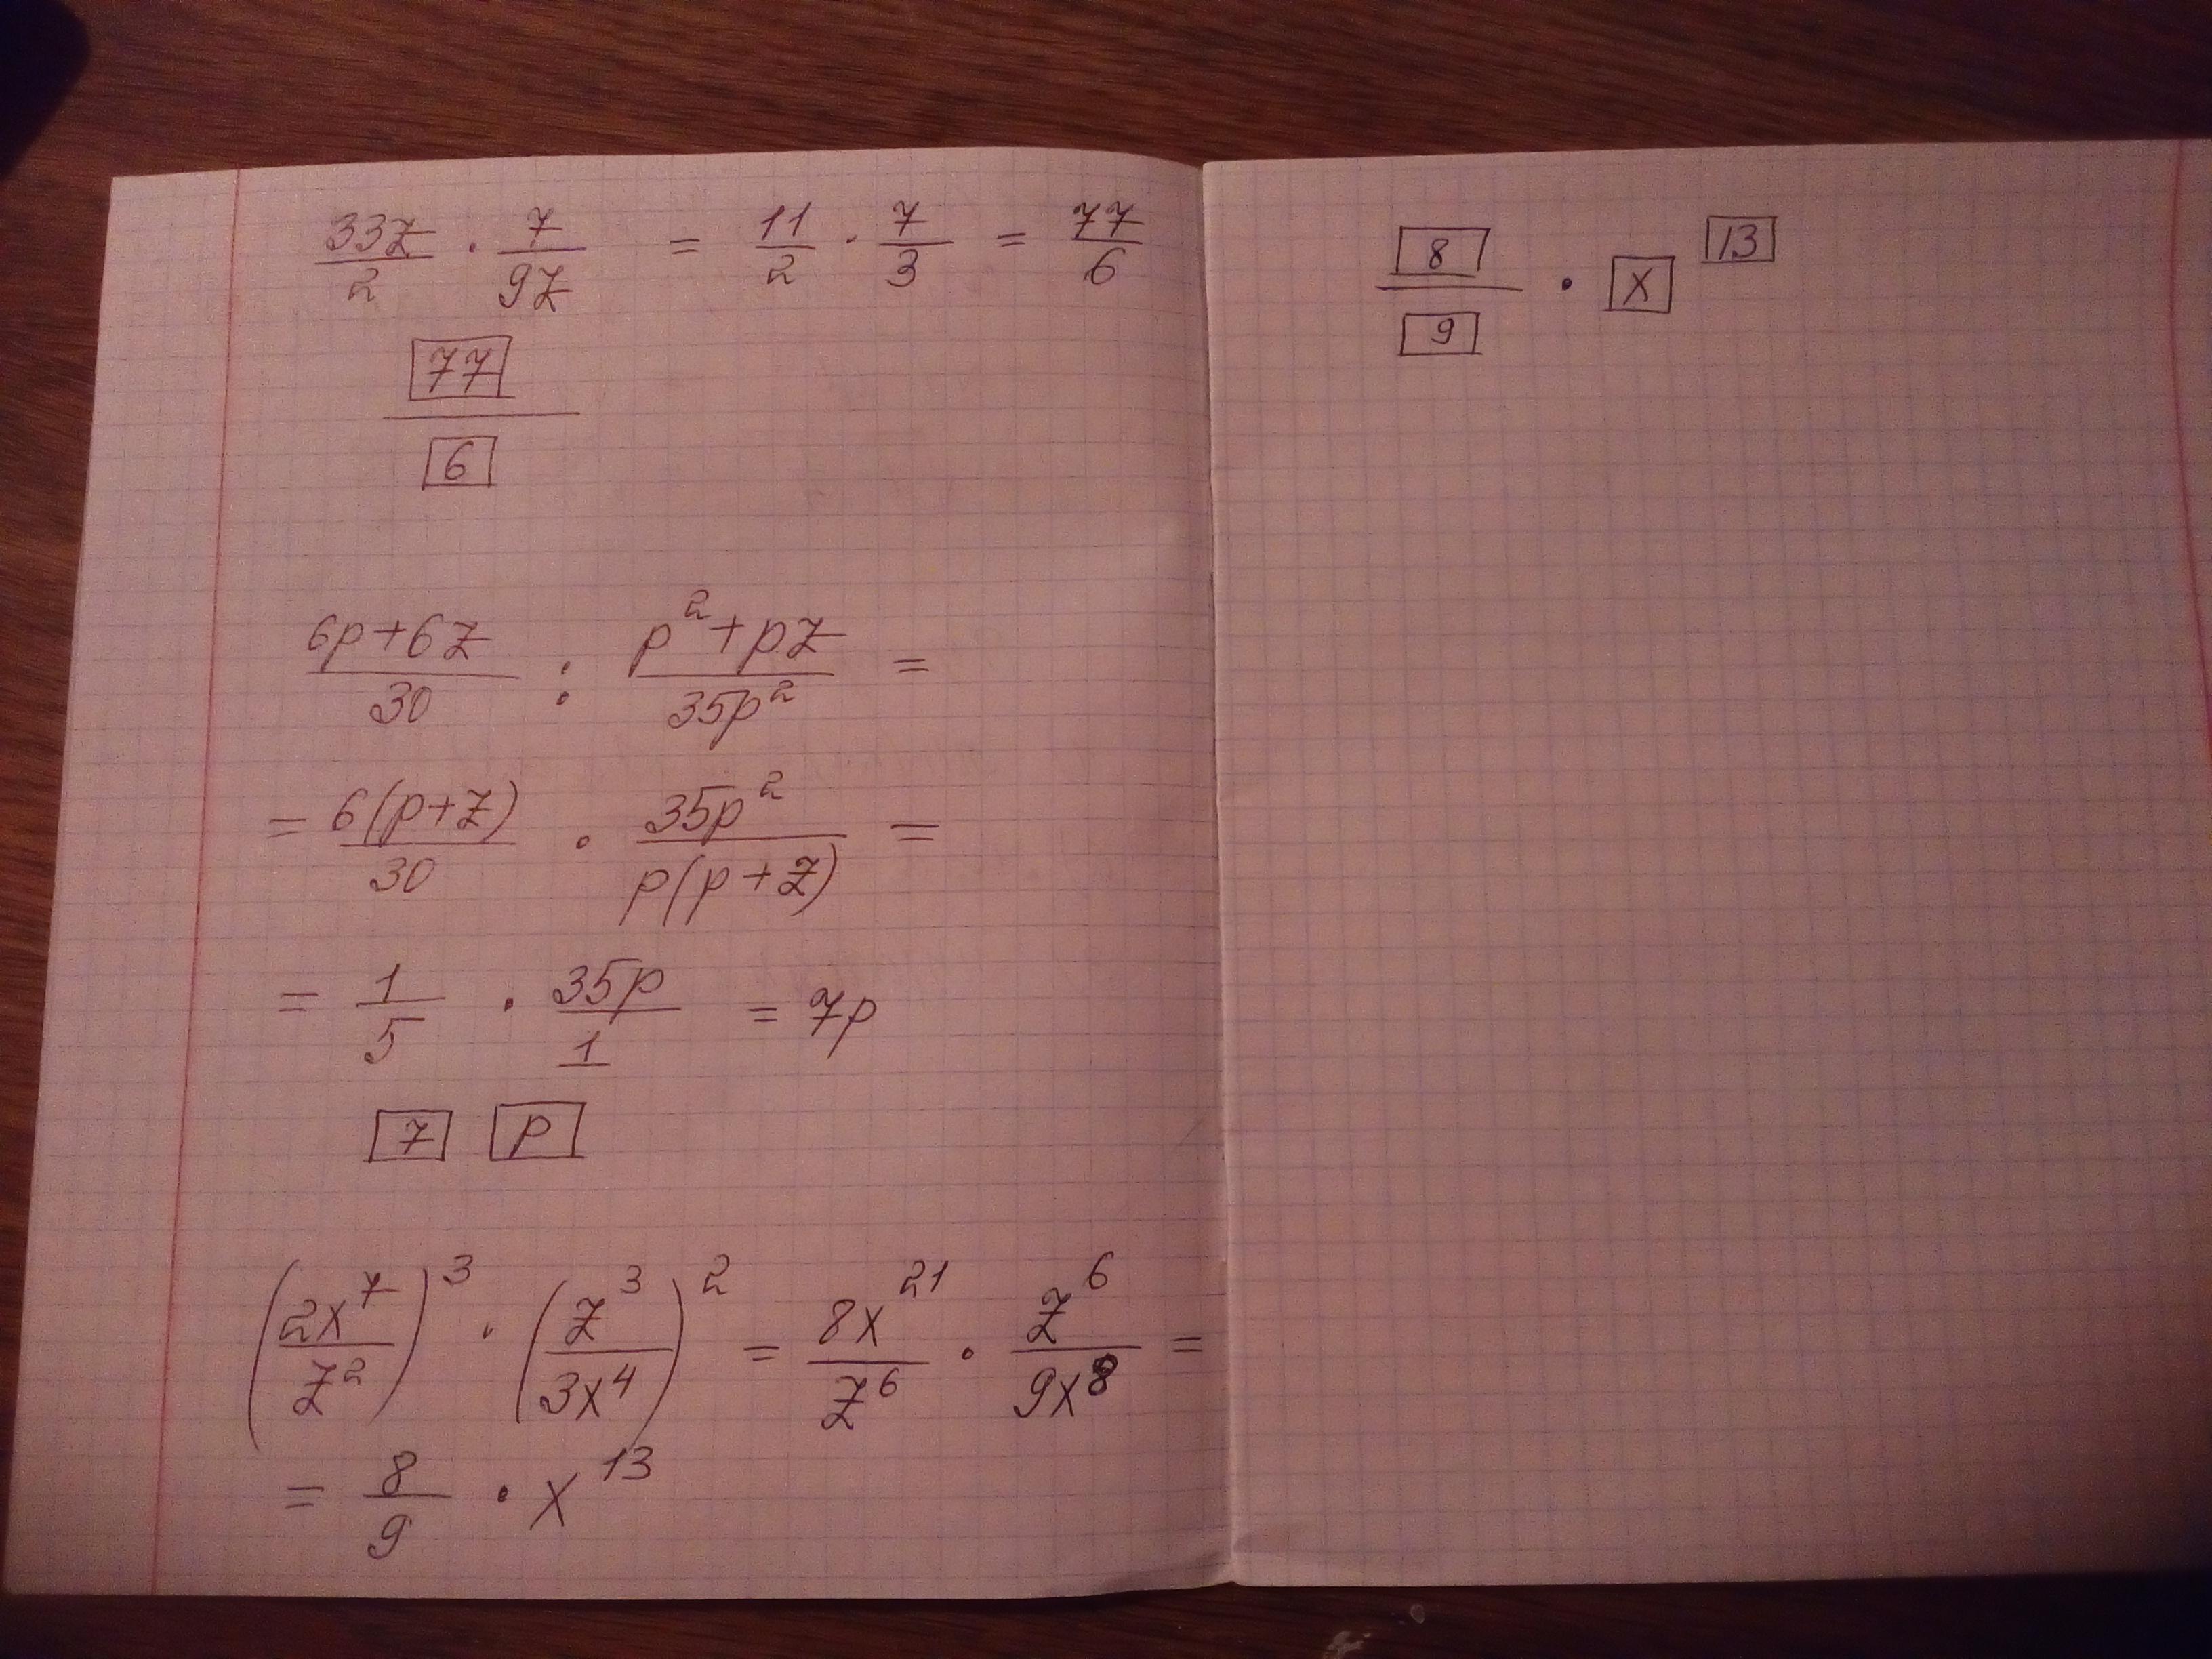 33z/2 · 7/9z = 11/2 · 7/3 = 77/6
77/6
(6p+6z)/30 : (p²+pz)/35p² =
= 6(p+z)/30 · 35p²/p(p+z) =
= 1/5 · 35p/1 = 7p
7 p
(2x⁷/z²)³ · (z³/3x⁴)² = 8x²¹/z⁶ · z⁶/9x⁸ =
= 8/9 · x¹³
8/9 · x¹³